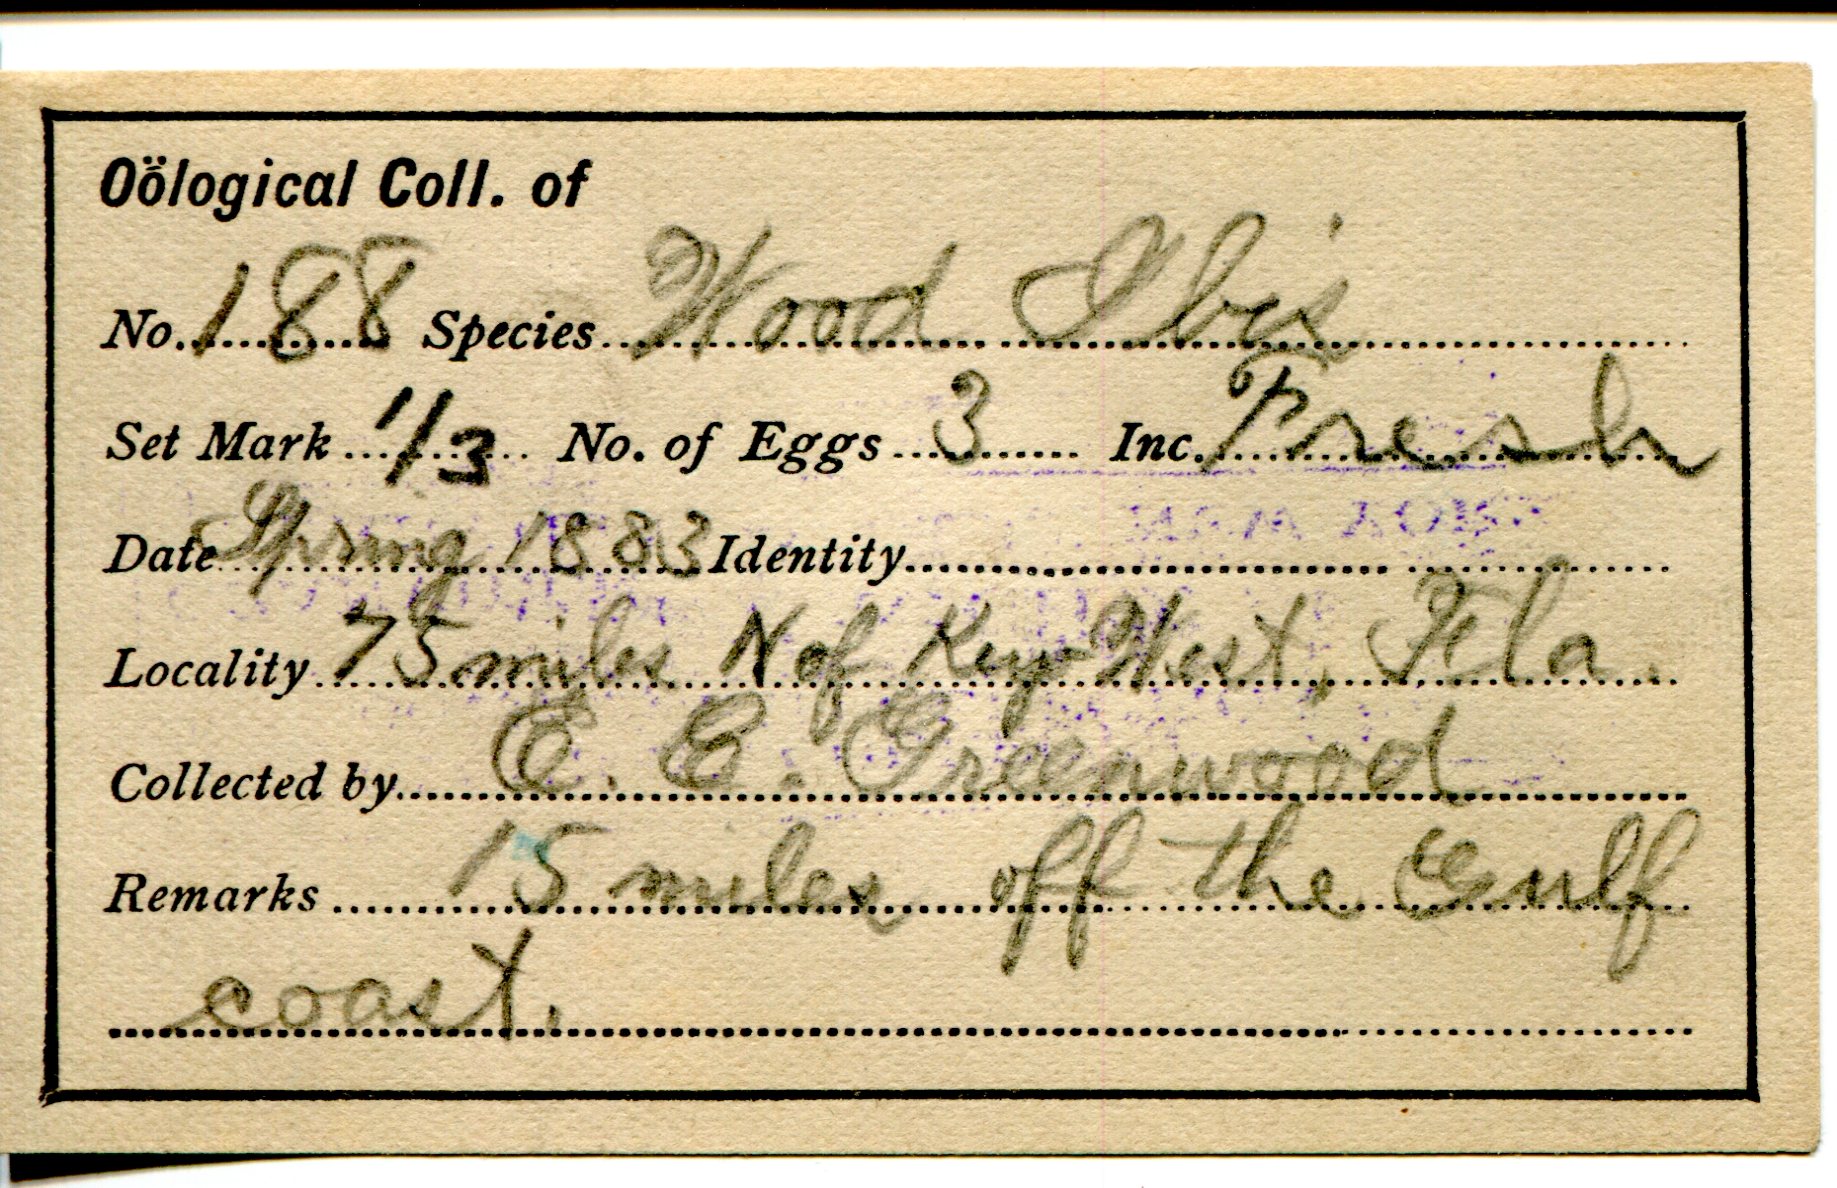 Oölogical Coll. of
No. 188 Species Wood Ibis
Set Mark 1/3 No. of Eggs 3 Inc. Fresh
Date Spring 1883 Identity
Locality 75 miles N of Key West, Fla.
Collected by E. C. Greenwood
Remarks 15 miles off the Gulf
coast.